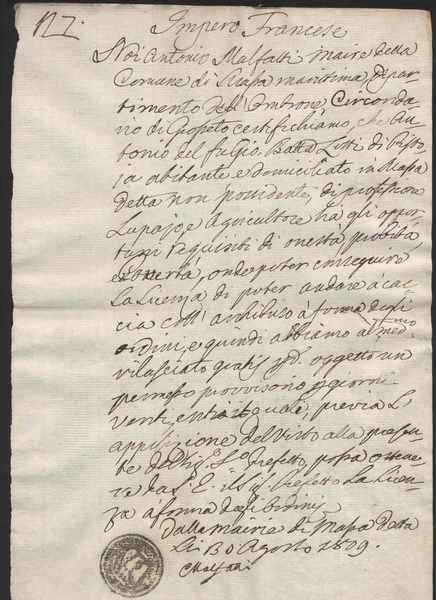 N 7.
Impero Francese
Noi Antonio Malfatti Maire della
Comune di Massa marittima, Dipar-
timento dell' Ombrone, Circonda-
rio di Grosseto certifichiamo, che An-
tonio del fu Gio. Batta di Pisto-
ja abitante e domiciliato in Massa
detta non possidente, di professione
Lupajo e Agricoltore ha gli oppor-
tuni requisiti di onestà, probità,
e onde poter conseguire
La Licenza di poter andare a cac-
cia coll' archibuso à forma degli
ordini, e quindi abbiamo al med.mo
rilasciato gratis oggetto un
permesso provvisorio p giorni
venti, entro i quali, previa L'
apposizione del Visto alla presen-
te del Sig.e Prefetto, possa ottene-
re da S. E. il Sig. Prefetto La Licen-
za à forma degli Ordini
Dalla Mairie di Massa detta
Li Agosto 1809.
Malfatti